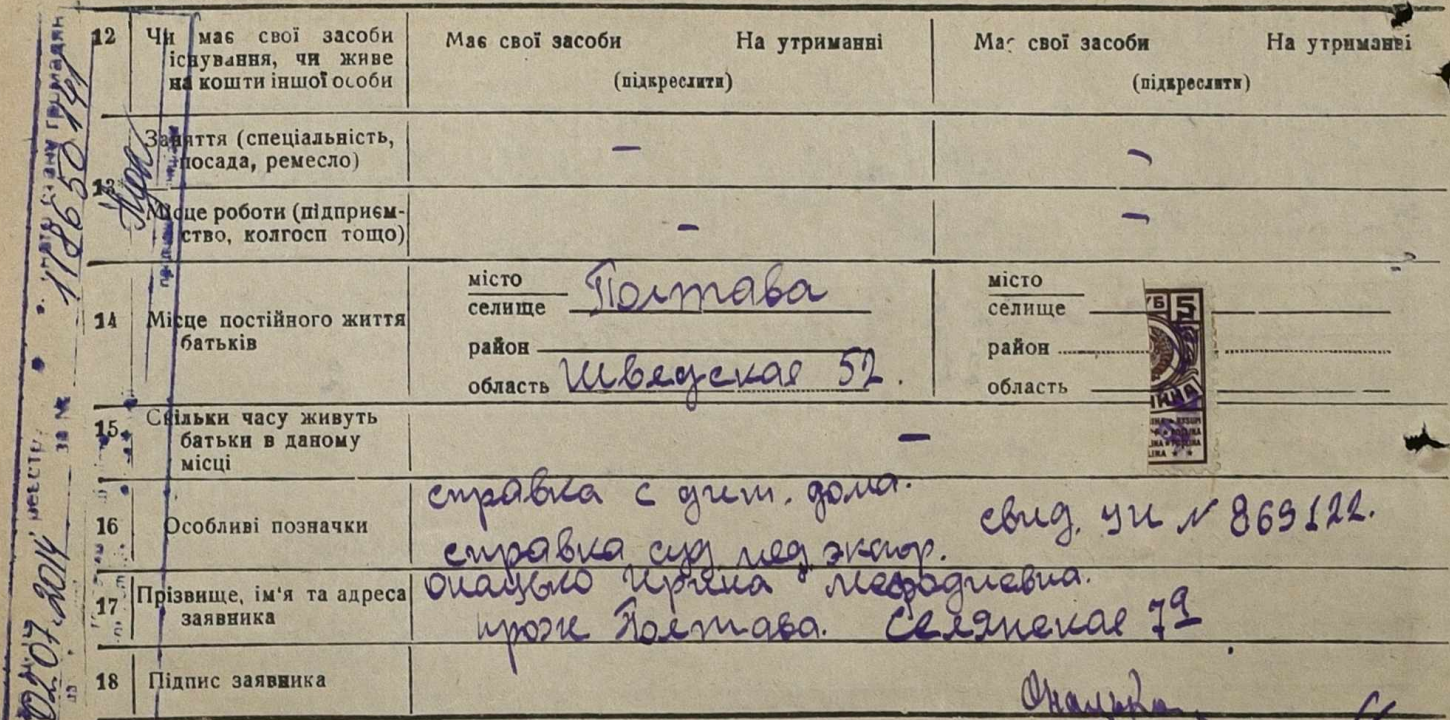 12 Чи має свої засоби існування, чи живе на кошти іншої особи
Має свої засоби На утриманні
(підкреслити)
Має свої засоби На утриманні
(підкреслити)
13 Заняття (спеціальність, посада, ремесло)
— —
Місце роботи (підприєм-
ство, колгосп тощо)
— —
14 Місце постійного життя батьків
місто
селище Полтава
район
область Шведская 52.
місто
селище
район
область
15 Скільки часу живуть батьки в даному місці
—
16 Особливі позначки
справка с дит. дома.
справка суд мед экспер.
свид. УИ № 869122.
17 Прізвище, ім'я та адреса заявника
Онацько Ирина Мефодиевна.
прож Полтава. Селянская 79
18 Підпис заявника
Онацько
02.07.2014
1186
УБ 5